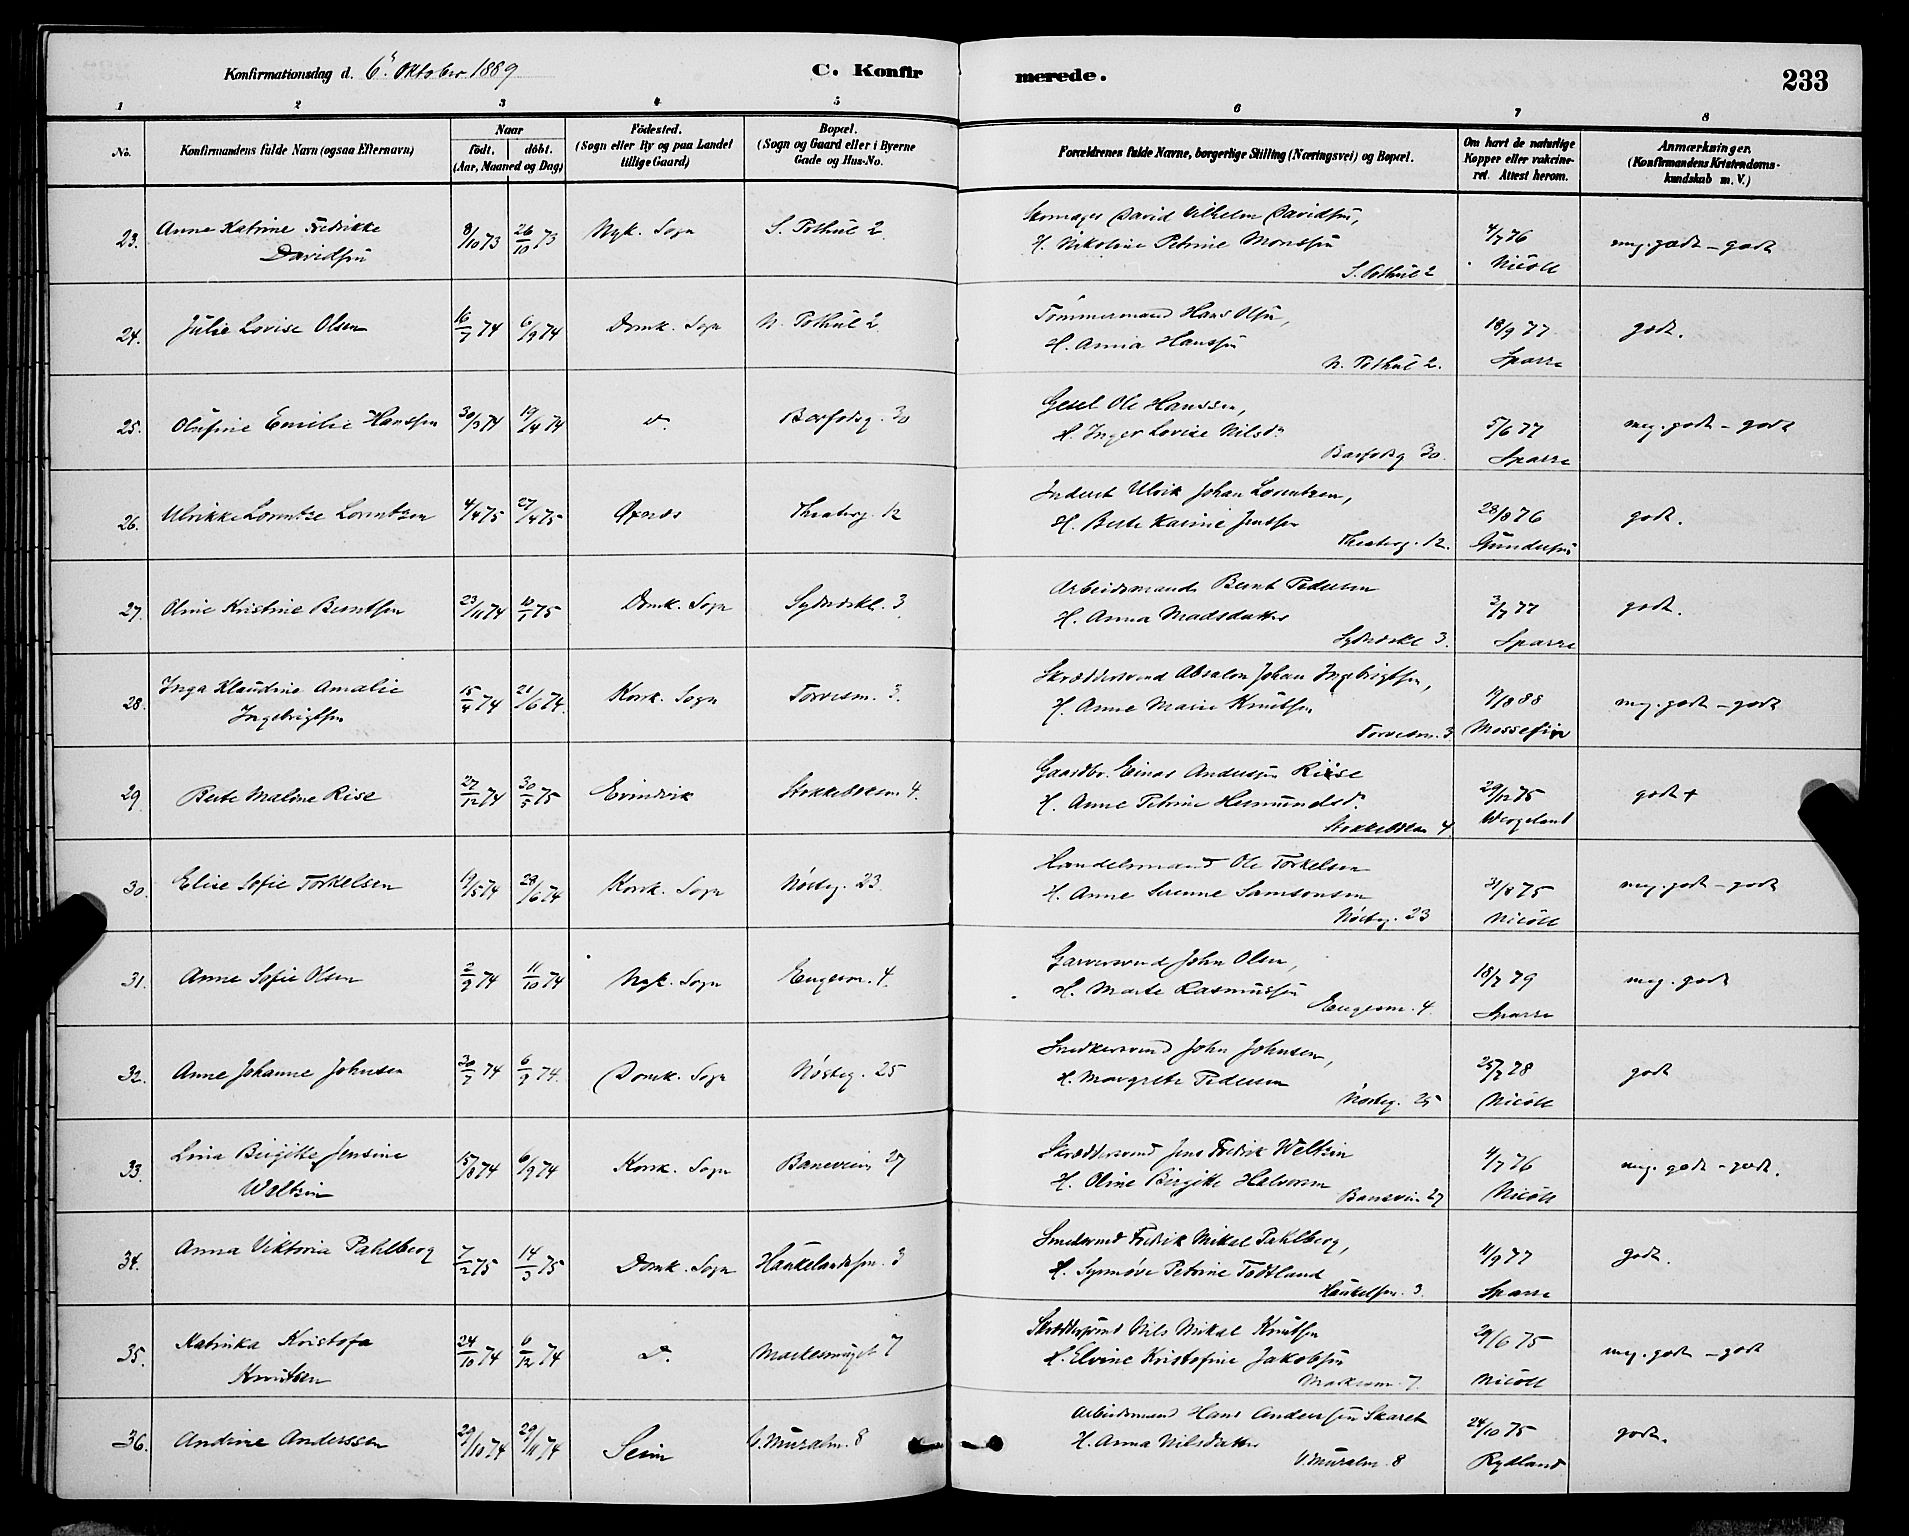 Konfirmationsdag d. 6' Oktober 1889 C. Konfirmerede. 233
1 2 3 4 5 6 7 8
No. Konfirmandens fulde Navn (ogsaa Efternavn) Naar födt. döbt. (Aar, Maaned og Dag) Födested. (Sogn eller By og paa Landet tillige Gaard) Bopæl. (Sogn og Gaard eller i Byerne Gade og Hus-No. Forældrenes fulde Navne, borgerlige Stilling (Næringsvei) og Bopæl. Om havt de naturlige Kopper eller vakcineret. Attest herom. Anmærkninger. (Konfirmandens Kristendomskundskab m. V.)
23. Anne Katrine Fredrikke 8/10 73 26/10 73 Nyk. Sogn S. Pothul 2 Skomager David Vilhelm Davidsen, 4/7 76 meg. godt - godt
Davidsen H. Nikoline Petrine Monssen Nicoll
S. Pothul 2
24. Julie Lovise Olsen 16/7 74 6/9 74 Domk. Sogn N. Pothul 2 Tømmermand Hans Olsen, 18/9 77 godt.
H. Annia Hanssen Sparre
N. Pothul 2.
25. Olufine Emilie Hanssen 30/3 74 19/4 74 d. Barfodsg. 30 Gesel Ole Hanssen, 5/6 77 meg. godt - godt
H. Inger Lovise Nilsd. Sparre
Barfodsg 30.
26. Ulrikke Lorentze Lorentzen 4/4 75 27/4 75 Øxnes Theaterg. 12 Inderst Ulrik Johan Lorentzen, 28/8 76 godt.
H. Berte Karine Jenssen Gundersen
Theaterg. 12.
27. Oline Kristine Berntsen 23/11 74 10/1 75 Domk. Sogn Sydneskl. 3 Arbeidsmand Bernt Pedersen 3/7 77 godt.
H. Anna Madsdatter Sparre
Sydneskl 3.
28. Inga Klaudine Amalie 15/4 74 21/6 74. Korsk. Sogn Torvesm. 3. Skræddersvend Absalon Johan Ingebrigtsen, 17/8 88 meg. godt - godt
Ingebrigtsen H. Anne Marie Knutsen
Torvesm. 3
29 Berte Maline Rise 27/12 74 30/5 75 Evindvik Stokkebksm 4. Gaardbr. Einar Andersen Riise 29/12 75 godt +
H. Anne Petrine Hermundsd. Wergeland
4.
30. Elise Sofie Torkelsen 19/5 74 28/6 74 Korsk. Sogn Nøsteg. 23. Handelsmand Ole Torkelsen 31/8 75 meg. godt - godt
H. Anne Serenne Samsonsen Nicoll
Nøsteg. 23
31. Anne Sofie Olsen 2/9 74 11/10 74 Nyk. Sogn Engesm. 4. Garversvend John Olsen, 18/7 79 meg. godt
H. Marte Rasmussen Sparre
Engesm. 4.
32. Anne Johanne Johnsen 30/7 74 6/9 74. Domk. Sogn Nøsteg. 25 Snedkersvend John Johnsen, 25/7 78 godt
H. Margrete Pedersen Nicoll
Nøsteg. 25
33. Lina Birgitte Jensine 15/8 74 6/9 74 Korsk. Sogn Baneveien 27 Skræddersvend Jens Fredrik Weltzin 4/7 76 meg. godt - godt.
Weltzin H. Oline Birgitte Halvorsen Nicoll
Banevein 27
34. Anna Viktoria Pahlberg 7/2 75 14/3 75 Domk. Sogn Haukelandssm. 3 Smedsvend Fredrik Mikal Pahlberg, 4/9 77 godt.
H. Synnøve Petrine Todtland Sparre
Haukelsm. 3.
35. Katinka Kristofa 24/10 74 6/12 74 d. Markesmuget 7 Skræddersvend Nils Mikal Knutsen 29/6 75 meg. godt - godt
Knutsen H. Elvine Kristofine Jakobsen Nicoll
Markesm. 7.
36. Andrine Anderssen 29/10 74 29/11 74 Seim V. Muralm. 8 Arbeidsmand Hans Anderssen Skaret 24/10 75 godt.
H. Anna Nilsdatter Rydland
V. Muralm. 8